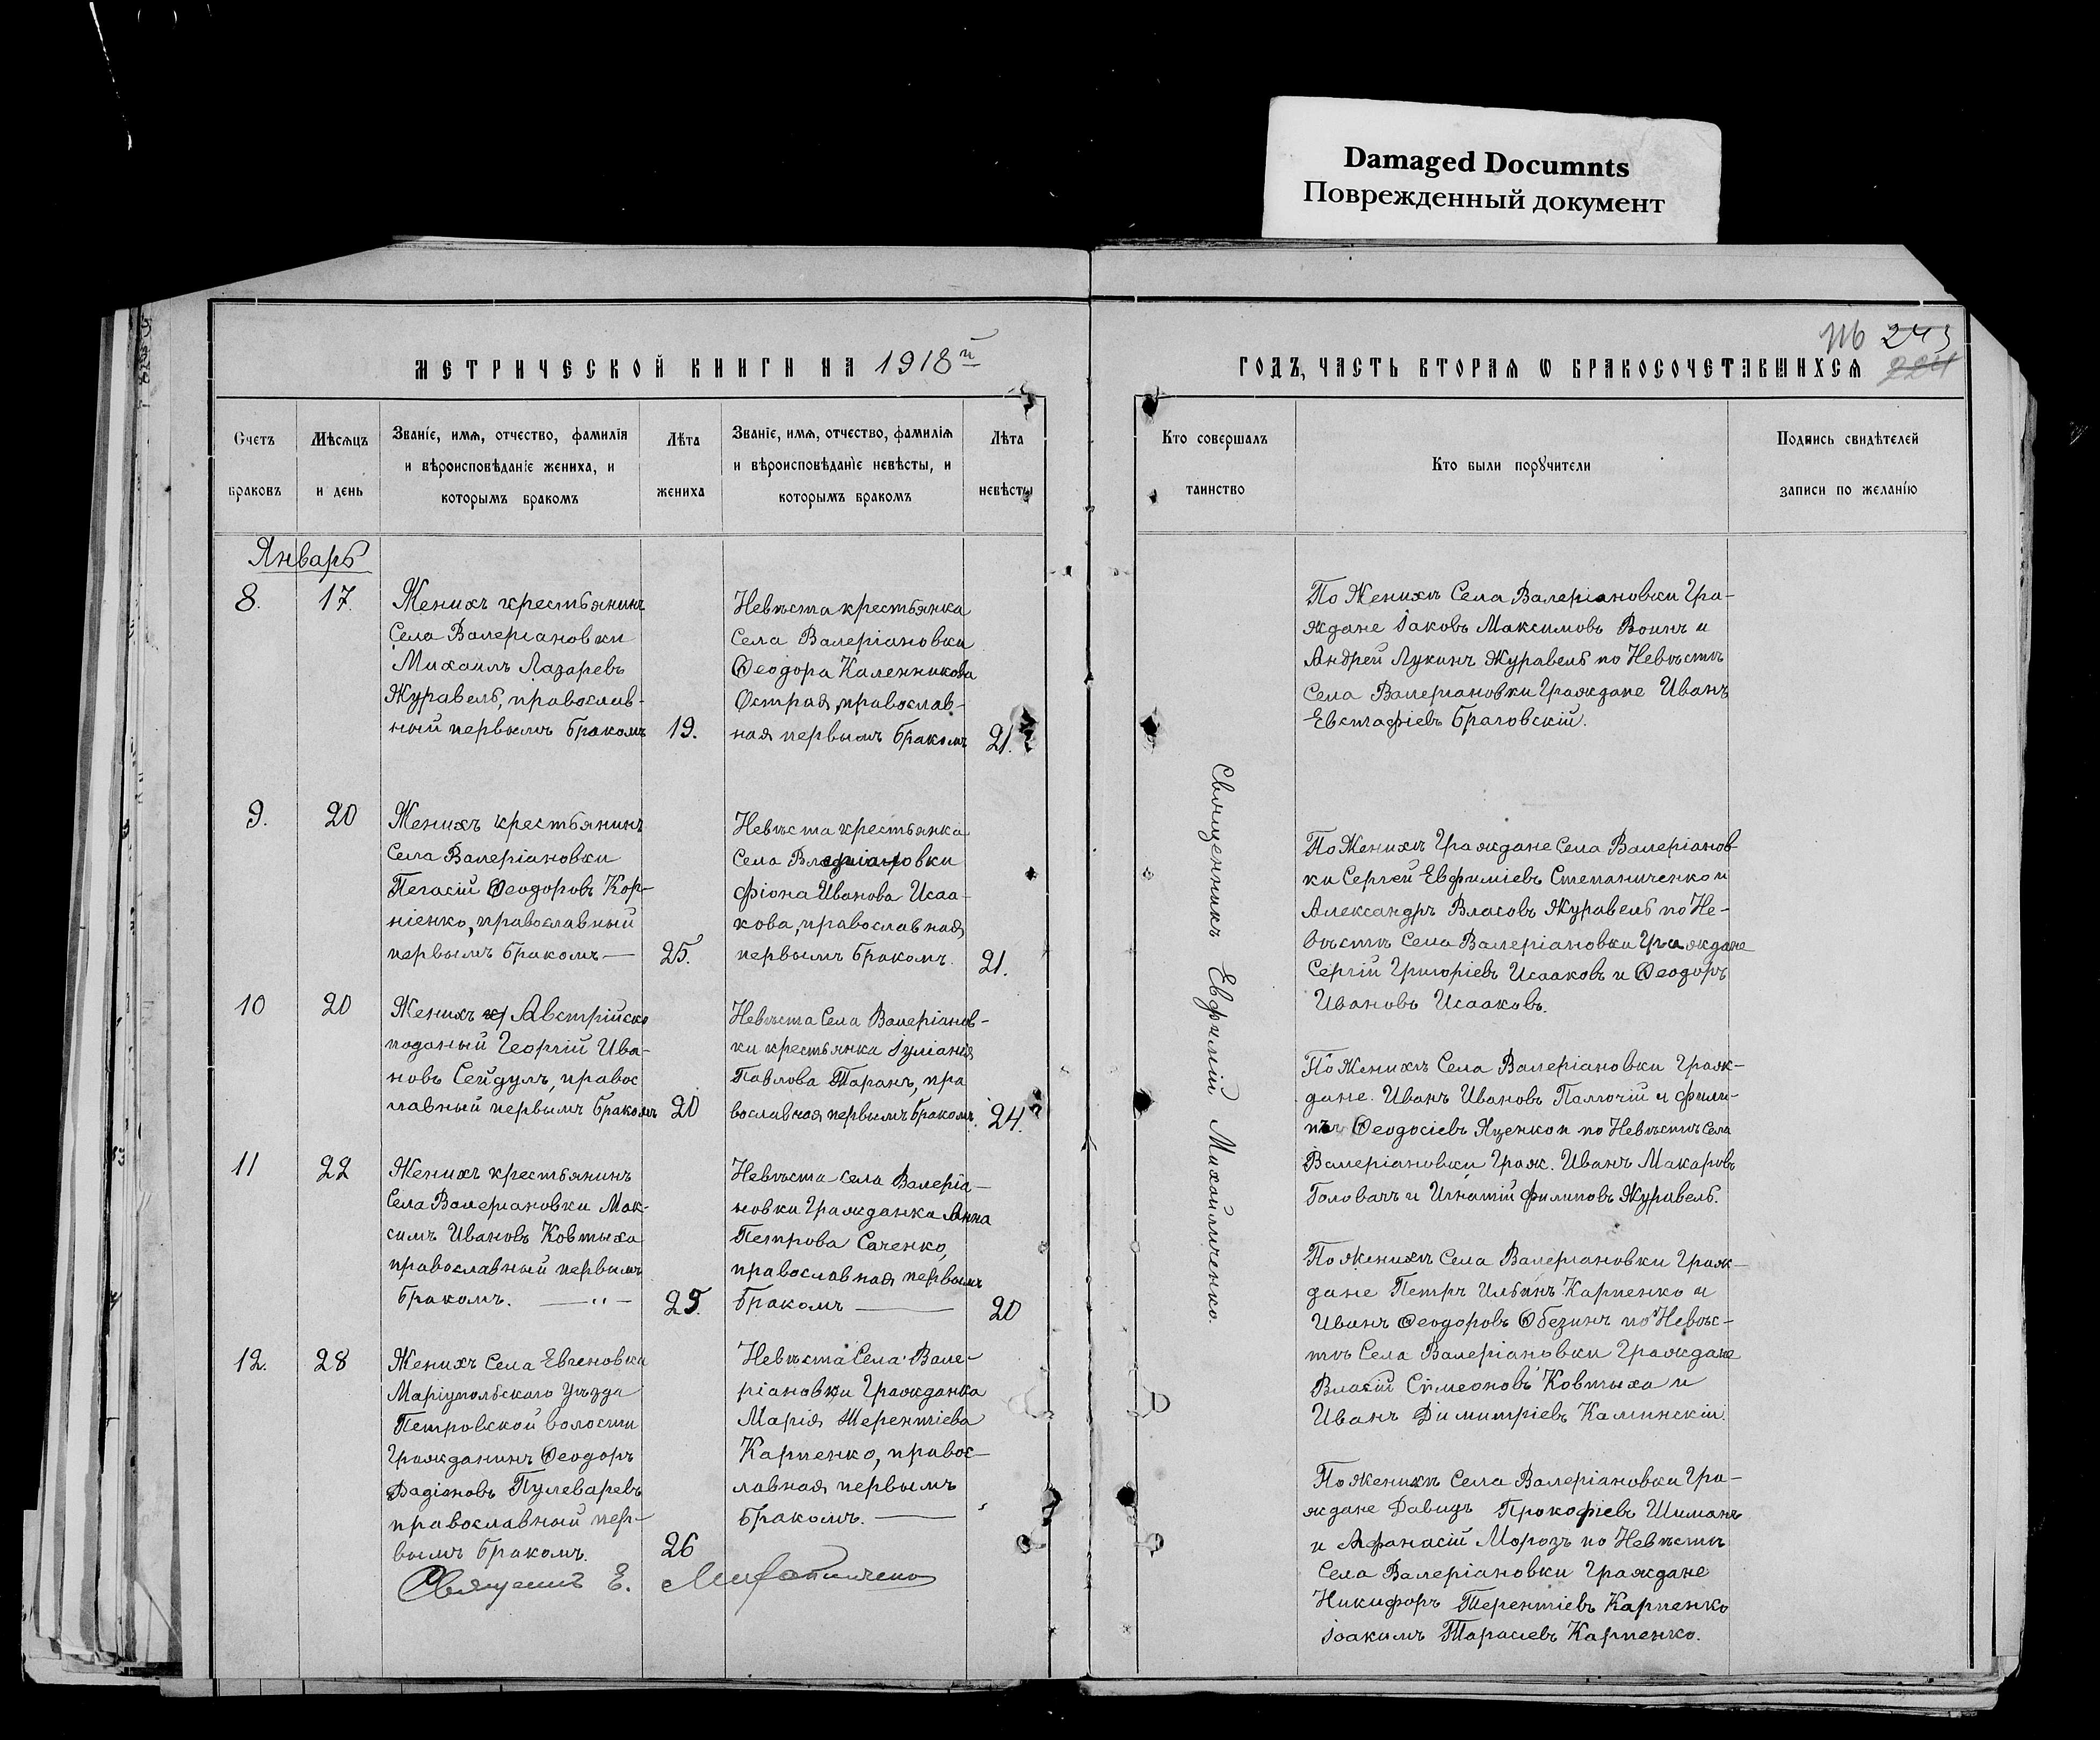 Damaged Documnts
Поврежденный документ
МЕТРИЧЕСКОЙ КНИГИ НА 1918й
ГОДЪ, ЧАСТЬ ВТОРАЯ Ѡ БРАКОСОЧЕТАВШИХСЯ
243
224
Счетъ браковъ
Мѣсяцъ и день
Званіе, имя, отчество, фамилія
и вѣроисповѣданіе жениха, и
которымъ бракомъ
Лѣта жениха
Званіе, имя, отчество, фамилія
и вѣроисповѣданіе невѣсты, и
которымъ бракомъ
Лѣта невѣсты
Кто совершалъ таинство
Кто были порꙋчители
Подпись свидѣтелей
записи по желанію
Январь
8.
17.
Женихъ крестьянинъ
Села Валеріановки
Михаилъ Лазаревъ
Журавель, православ-
ный первымъ бракомъ
19.
Невѣста крестьянка
Села Валеріановки
Ѳеодора Каленникова
Острая, православ-
ная первымъ бракомъ
21.
По Женихѣ Села Валеріановки Гра-
ждане Іаковъ Максимовъ Воинъ и
Андрей Лукинъ Журавель по Невѣстѣ
Села Валеріановки Граждане Иванъ
Евстафіевъ Браговскій.
9.
20
Женихъ крестьянинъ
Села Валеріановки
Пегасій Ѳеодоровъ Кор-
ніенко, православный
первымъ бракомъ —
25.
Невѣста крестьянка
Села
Фіона Иванова Исаа-
кова, православная
первымъ бракомъ.
21.
По Женихѣ Граждане Села Валеріанов-
ки Сергей Евфиміевъ Степаниченко и
Александръ Власовъ Журавель по Не-
вѣстѣ Села Валеріановки Граждане
Сергій Григоріевъ Исааковъ и Ѳеодоръ
Ивановъ Исааковъ.
10
20
Женихъ Австрійско
поданый Георгій Ива-
новъ Сейдулъ, правос
лавный первымъ бракомъ
20
Невѣста Села Валеріанов-
ки крестьянка Іуліанія
Павлова Таранъ, пра
вославная первымъ бракомъ.
24.
По Женихѣ Села Валеріановки Граж-
дане. Иванъ Ивановъ и Фили-
пъ Ѳеодосіевъ Яценко и по Невѣстѣ Села
Валеріановки Граж. Иванъ Макаровъ
Головачъ и Игнатій Филиповъ Журавель.
11
22
Женихъ крестьянинъ
Села Валеріановки Мак-
симъ Ивановъ Ковтыха
православный первымъ
бракомъ. — " —
25.
Невѣста села Валеріа-
новки Гражданка Анна
Петрова Саченко,
православная первымъ
бракомъ —
20
По женихѣ Села Валеріановки Граж-
дане Петръ Ильинъ Карпенко и
Иванъ Ѳеодоровъ Обезинъ по Невѣс-
тѣ Села Валеріановки Граждане
Власій Симеоновъ Ковтыха и
Иванъ Димитріевъ Калинскій.
12.
28
Женихъ Села Евгеновки
Маріупольскаго Уѣзда
Петровской волости
Гражданинъ Ѳеодоръ
Пулеваревъ
православный пер-
вымъ бракомъ.
26
Невѣста Села Вале-
ріановки Гражданка
Марія Терентіева
Карпенко, правос-
лавная первымъ
бракомъ. —
По женихѣ Села Валеріановки Гра-
ждане Давидъ Прокофіевъ Шиманъ
и Афанасій Морозъ по Невѣстѣ
Села Валеріановки Граждане
Никифоръ Терентіевъ Карпенко
Іоакимъ Тарасіевъ Карпенко.
Священникъ Евфимій Михайличенко.
Священникъ Е. Михайличенко